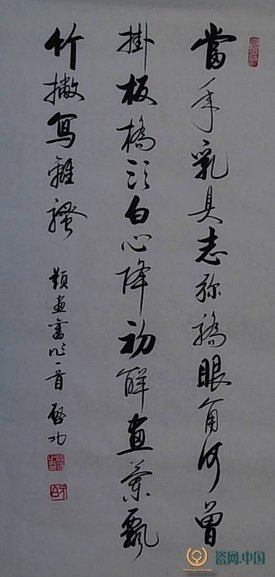 當年乳臭志弥驕眼角何曾
掛板橋頭白心降初解畫蘭飄
竹撇寫離騷
題畫舊作一首 啓功
瓷网.中国